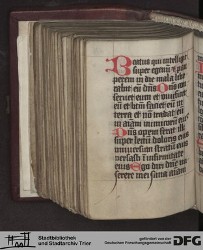 Beatus qui intelligit
super egenū et pau
perem in die mala libe
rabit eū dn̄s Dn̄s con
seruet eum et viuificet
eū et btm̄ faciat eū in
terra et nō tradat eū
in aīam inimicoꝝ eius
Dn̄s opem ferat illi
super lectū doloris eius
uniuersū stratū eius
versasti ī infirmitate
eius Ego dixi dn̄e mi
serere mei sana aīam
Stadtbibliothek
und Stadtarchiv Trier
gefördert von der
Deutschen Forschungsgemeinschaft
DFG